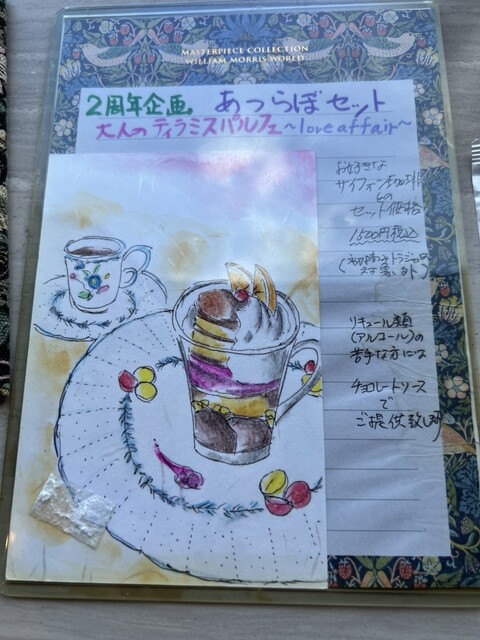 MASTERPIECE COLLECTION
WILLIAM MORRIS WORLD
2周年企画、あつらぼセット
大人のティラミスパルフェ～love affair～
お好きな
サイフォン珈琲
との
セット価格
1,500円税込
リキュール類
(アルコール)の
苦手な方には
チョコレートソース
で
ご提供致します